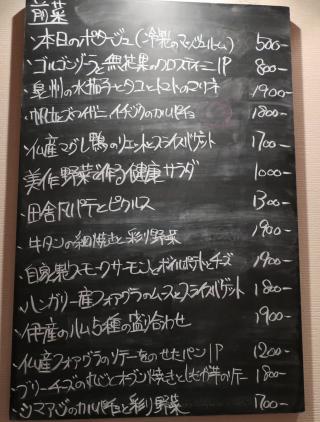 前菜
・本日のポタージュ(冷製のマッシュルーム) 500-
・ゴルゴンゾーラと無花果のクロスティーニ 1P 800-
・泉州の水茄子とタコとトマトのマリネ 1900-
イチジクのカルパッチョ 1800-
・仏産マグレ鴨のリエットとスライスバゲット 1700-
美作野菜で作る健康サラダ 1000-
・田舎風パテとピクルス 1300-
・牛タンの網焼きと彩り野菜 1900-
・自家製スモークサーモンとチーズ 1900-
・ハンガリー産フォアグラのムースとスライスバゲット 1800-
・伊産のハム5種の盛り合わせ 1900-
・仏産フォアグラのソテーをのせたパン 1P 1200-
・ブリーチーズの丸ごとオーブン焼きとのソテー 1800-
・シマアジのカルパッチョと彩り野菜 1700-